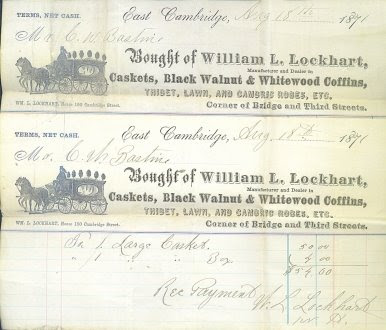 TERMS, NET CASH.
East Cambridge, Aug 18th 1871
M C. W. Bastine
Bought of William L. Lockhart,
Manufacturer and Dealer in
Caskets, Black Walnut & Whitewood Coffins,
THIBET, LAWN, AND CAMBRIC ROBES, ETC.
WM. L. LOCKHART, House 100 Cambridge Street.
Corner of Bridge and Third Streets.
TERMS, NET CASH.
East Cambridge, Aug 18th 1871
M C. W. Bastine
Bought of William L. Lockhart,
Manufacturer and Dealer in
Caskets, Black Walnut & Whitewood Coffins,
THIBET, LAWN, AND CAMBRIC ROBES, ETC.
WM. L. LOCKHART, House 100 Cambridge Street.
Corner of Bridge and Third Streets.
1 Large Casket 50 00
" 1 " " Box 4 00
$54.00
Rec Payment W. L. Lockhart